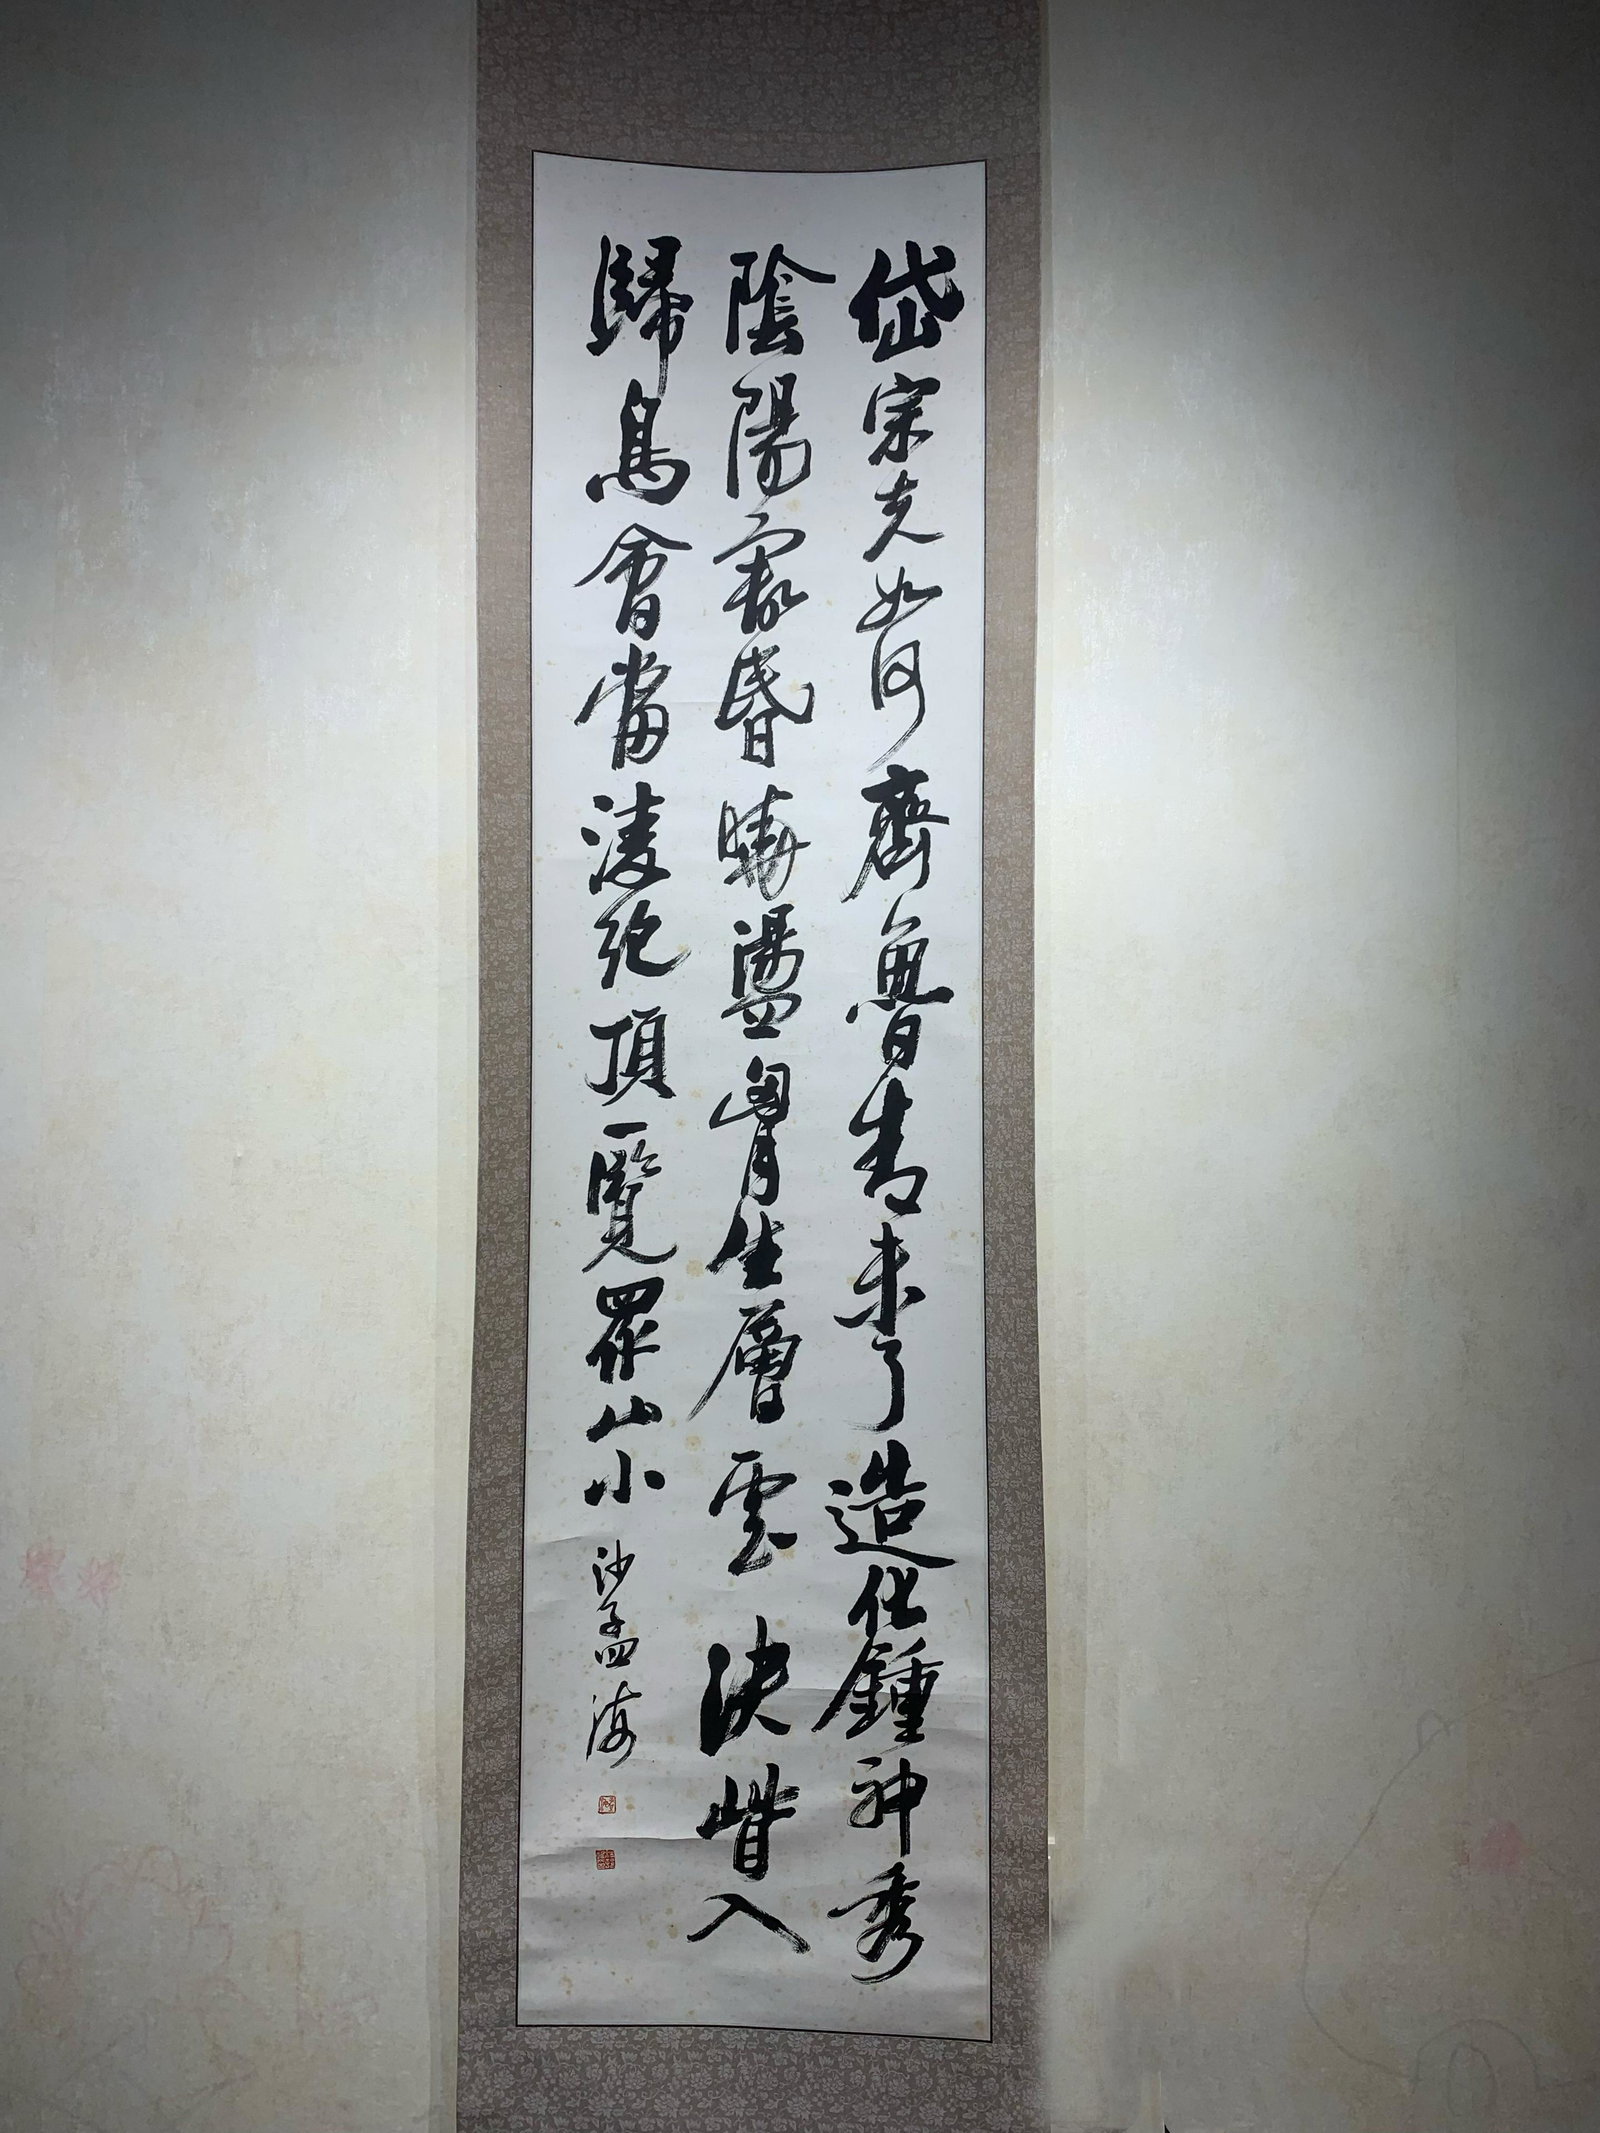 岱宗夫如何齊魯青未了造化鍾神秀
陰陽割昏曉盪胷生層雲決眥入
歸鳥會當淩絕頂一覽眾山小
沙孟海